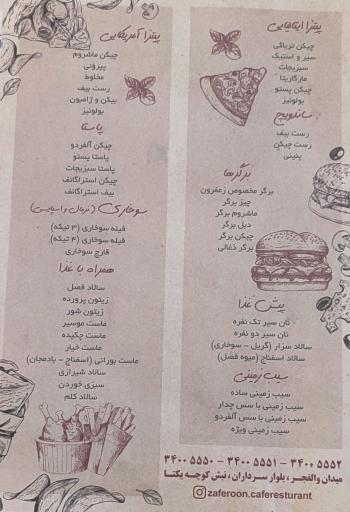 پیتزا ایتالیایی
چیکن تریاکی
سیر و استیک
سبزیجات
مارگاریتا
چیکن پستو
بولونیز
ساندویچ
رست بیف
رست چیکن
پنینی
برگرها
برگر مخصوص زعفرون
چیز برگر
ماشروم برگر
دبل برگر
چیکن برگر
برگر ذغالی
پیش غذا
نان سیر تک نفره
نان سیر دو نفره
سالاد سزار (گریل - سوخاری)
سالاد اسفناج (میوه فصل)
سیب زمینی
سیب زمینی ساده
سیب زمینی با سس چدار
سیب زمینی با سس آلفردو
سیب زمینی ویژه
پیتزا آمریکایی
چیکن ماشروم
پپرونی
مخلوط
رست بیف
بیکن و ژامبون
بولونیز
پاستا
چیکن آلفردو
پاستا پستو
پاستا سبزیجات
چیکن استراگانف
بیف استراگانف
سوخاری (نرمال و اسپایسی)
فیله سوخاری (۳ تیکه)
فیله سوخاری (۴ تیکه)
قارچ سوخاری
همراه با غذا
سالاد فصل
زیتون پرورده
زیتون شور
ماست موسیر
ماست چکیده
ماست خیار
ماست بورانی (اسفناج - بادمجان)
سالاد شیرازی
سبزی خوردن
سالاد کلم
۳۴۰۰ ۵۵۵۰ - ۳۴۰۰ ۵۵۵۱ - ۳۴۰۰ ۵۵۵۲
میدان والفجر، بلوار سرداران، نبش کوچه یکتا
zaferoon.caferesturant